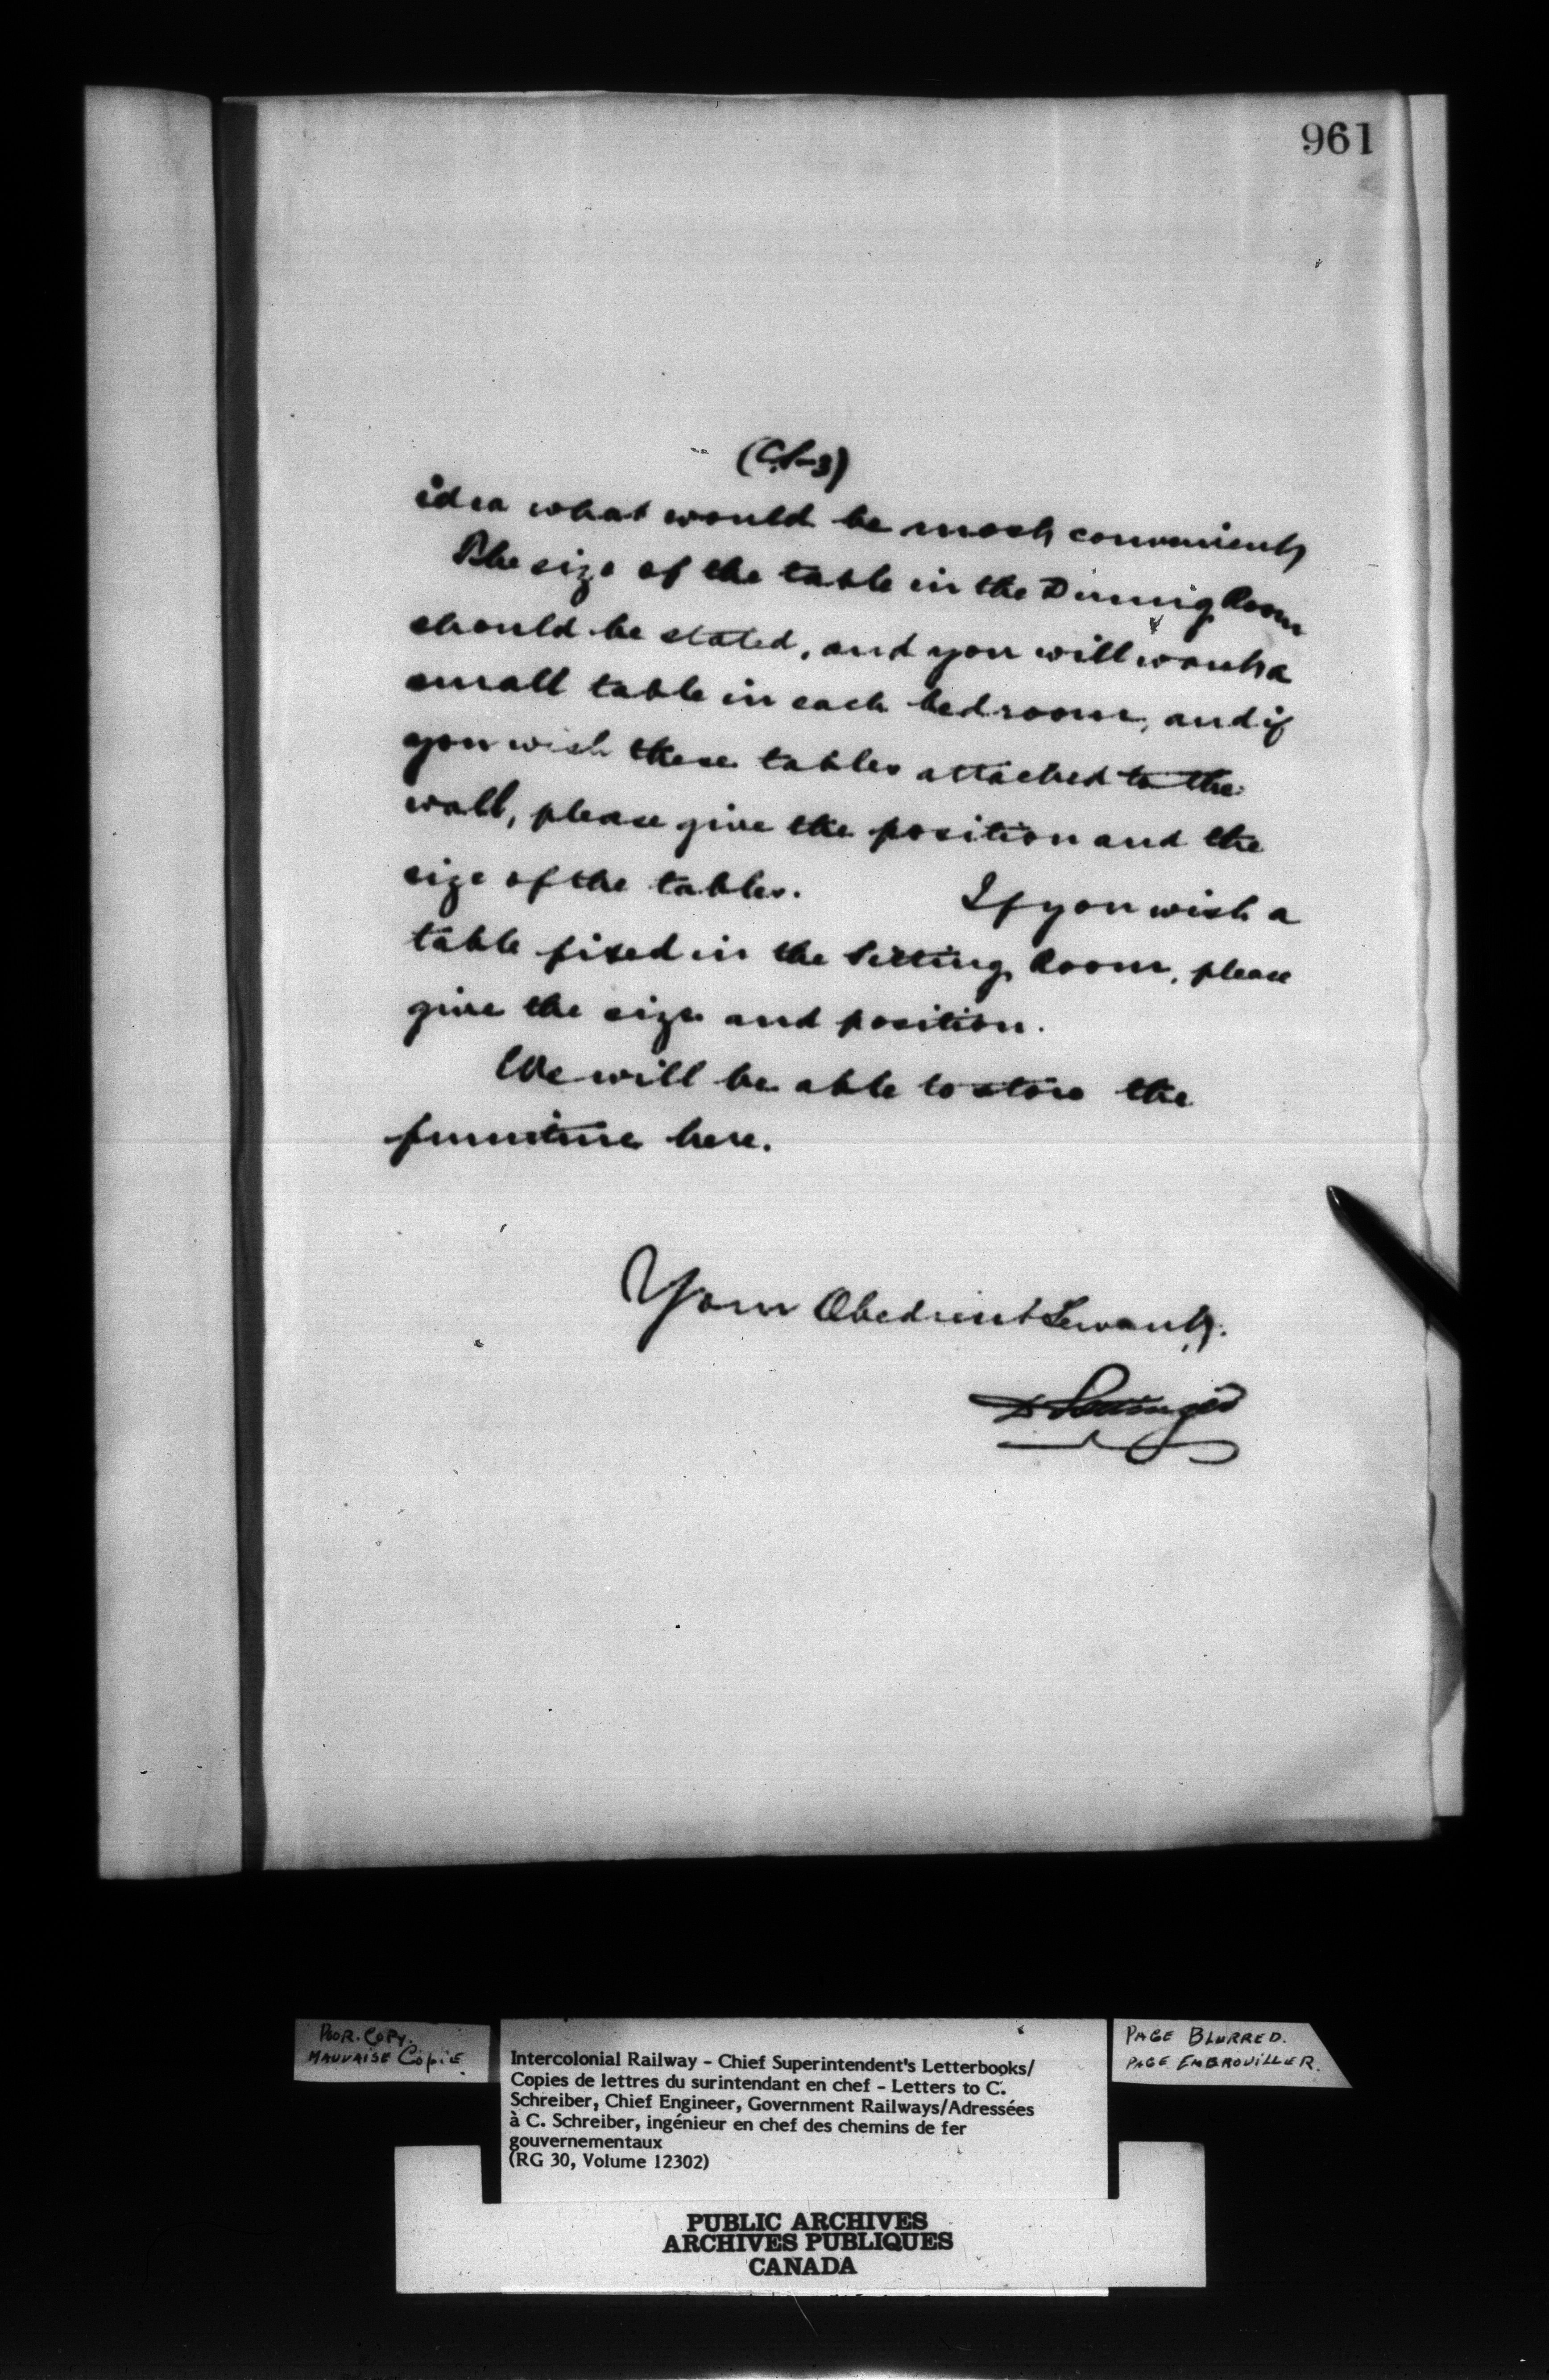 961
(CS-3)
idea what would be most convenient
The size of the table in the Dinning Room
should be stated, and you will want a
small table in each bedroom, and if
you wish these tables attached to the
wall, please give the position and the
size of the tables. If you wish a
table fixed in the Sitting Room, please
give the size and position.
We will be able to store the
furniture here.
Your Obedient Servant.
D Pottinger
POOR. COPY.
MAUVAISE COPIE
Intercolonial Railway - Chief Superintendent's Letterbooks/
Copies de lettres du surintendant en chef - Letters to C.
Schreiber, Chief Engineer, Government Railways/Adressées
à C. Schreiber, ingénieur en chef des chemins de fer
gouvernementaux
(RG 30, Volume 12302)
PAGE BLURRED.
PAGE EMBROUILLER.
PUBLIC ARCHIVES
ARCHIVES PUBLIQUES
CANADA